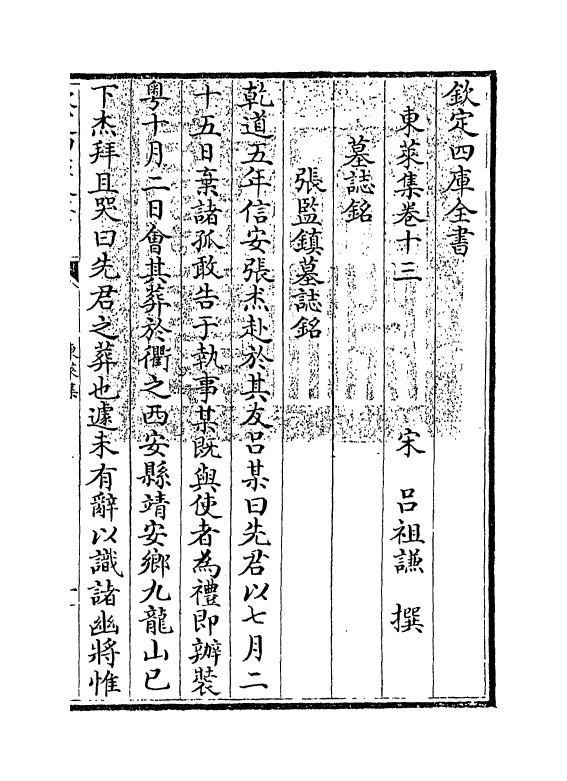 欽定四庫全書
東萊集卷十三　　　　宋　呂祖謙　撰
墓誌銘
張監鎮墓誌銘
乾道五年信安張杰赴於其友呂某曰先君以七月二
十五日棄諸孤敢告于執事某既與使者為禮即辦裝
粵十月二日會其葬於衢之西安縣靖安鄉九龍山已
下杰拜且哭曰先君之葬也遽未有辭以識諸幽將惟
東萊集